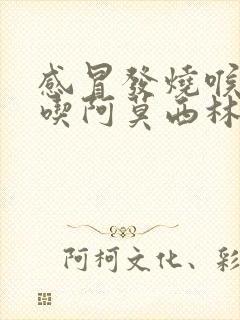 感冒發燒喉
喫阿莫西林
阿柯文化、彩